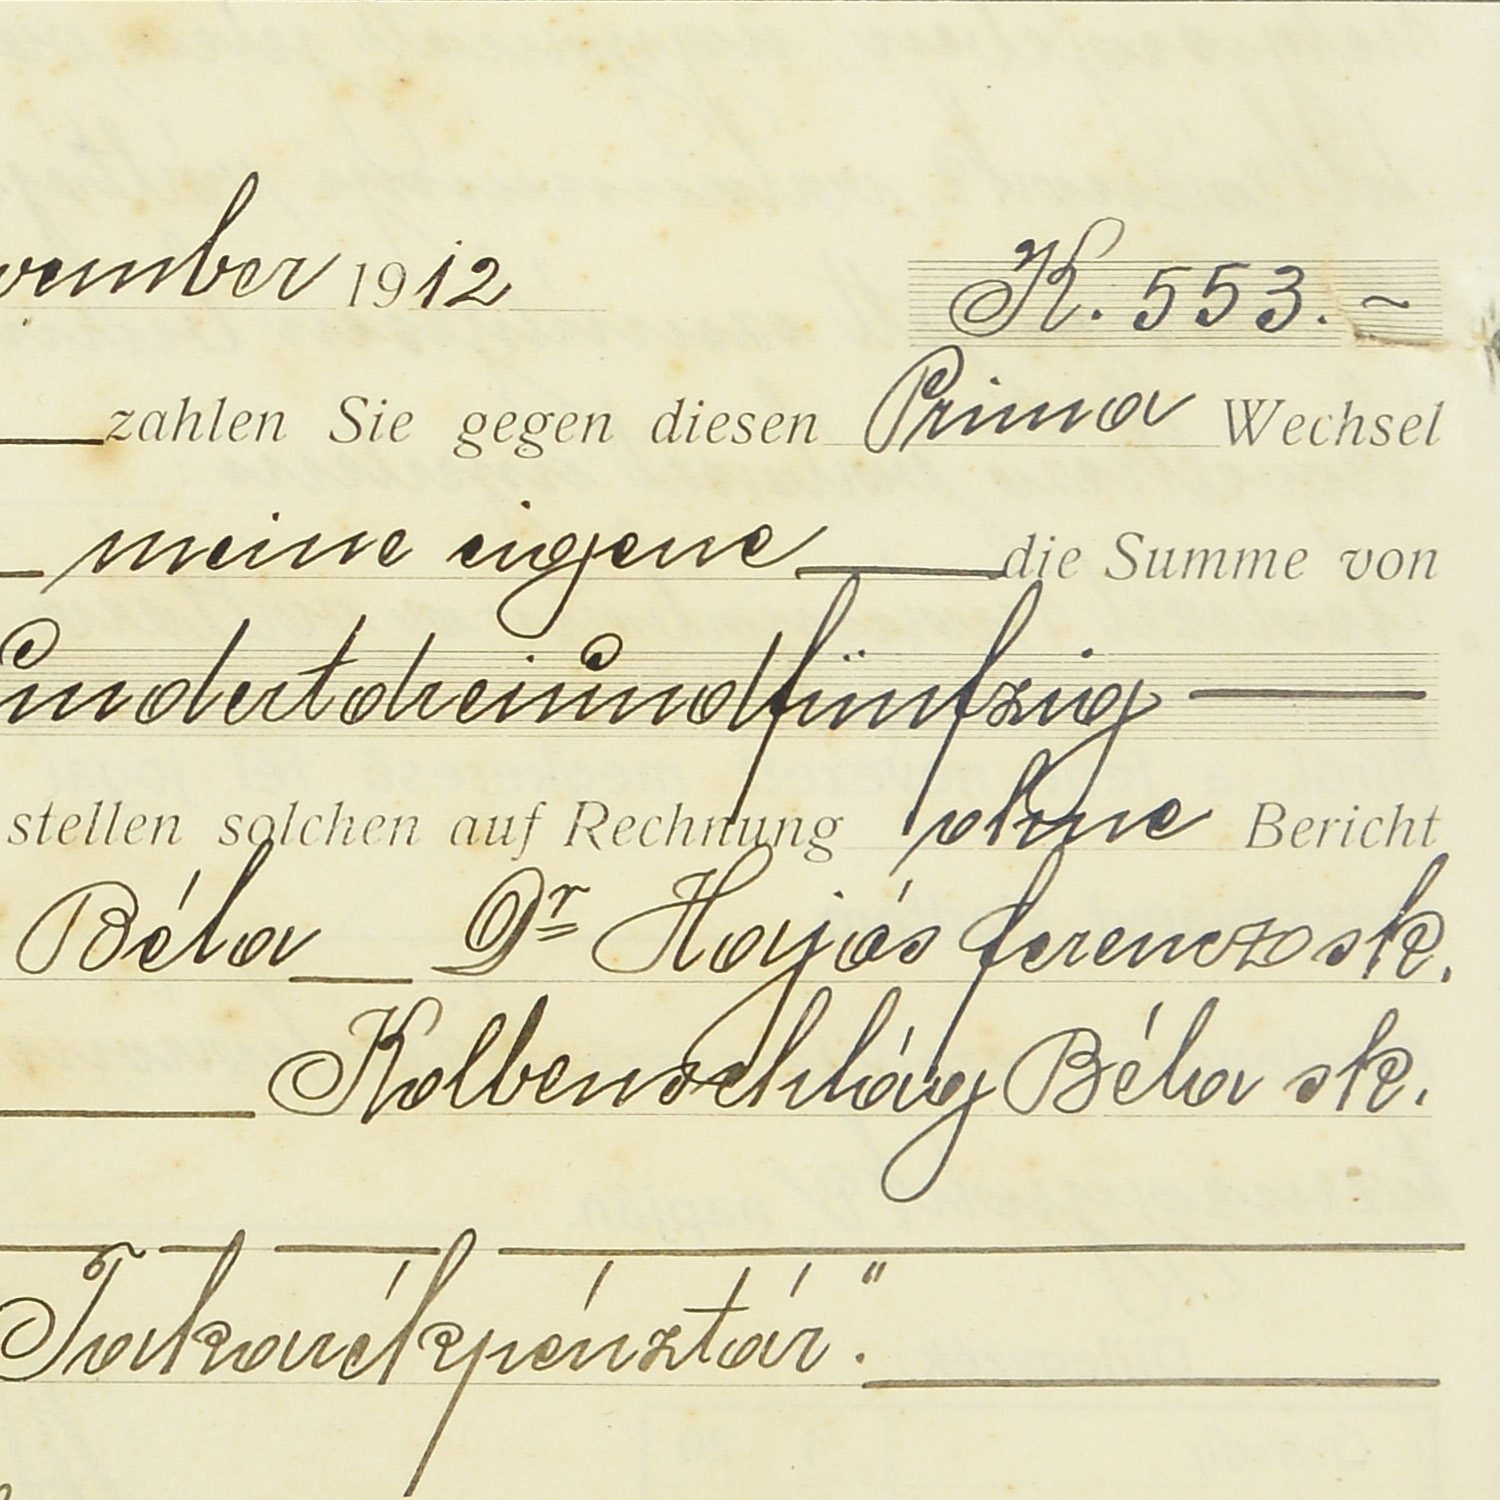 vember 1912
K. 553.~
zahlen Sie gegen diesen Prima Wechsel
meine eigene die Summe von
undertdreiundfünfzig
stellen solchen auf Rechnung ohne Bericht
Béla Dr Hajós ferencz sk.
Kolbenschlág Béla sk.
Takarékpénztár."